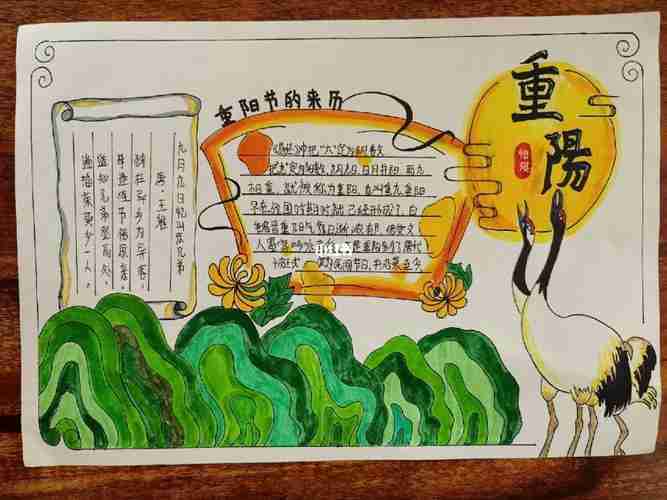 重阳节的来历
重陽
九月九日忆山东兄弟
唐·王维
独在异乡为异客，
每逢佳节倍思亲。
遥知兄弟登高处，
遍插茱萸少一人。
《易经》中把“六”定为阴数
把“九”定为阳数，九月九日，日月并阳，两九
相重，就被称为重阳，也叫重九。重阳
早在战国时期时就已经形成了，自
魏晋重阳气氛日渐浓郁，倍受文
人墨客吟咏 重阳到了唐代
被正式 民间节日，并沿袭至今